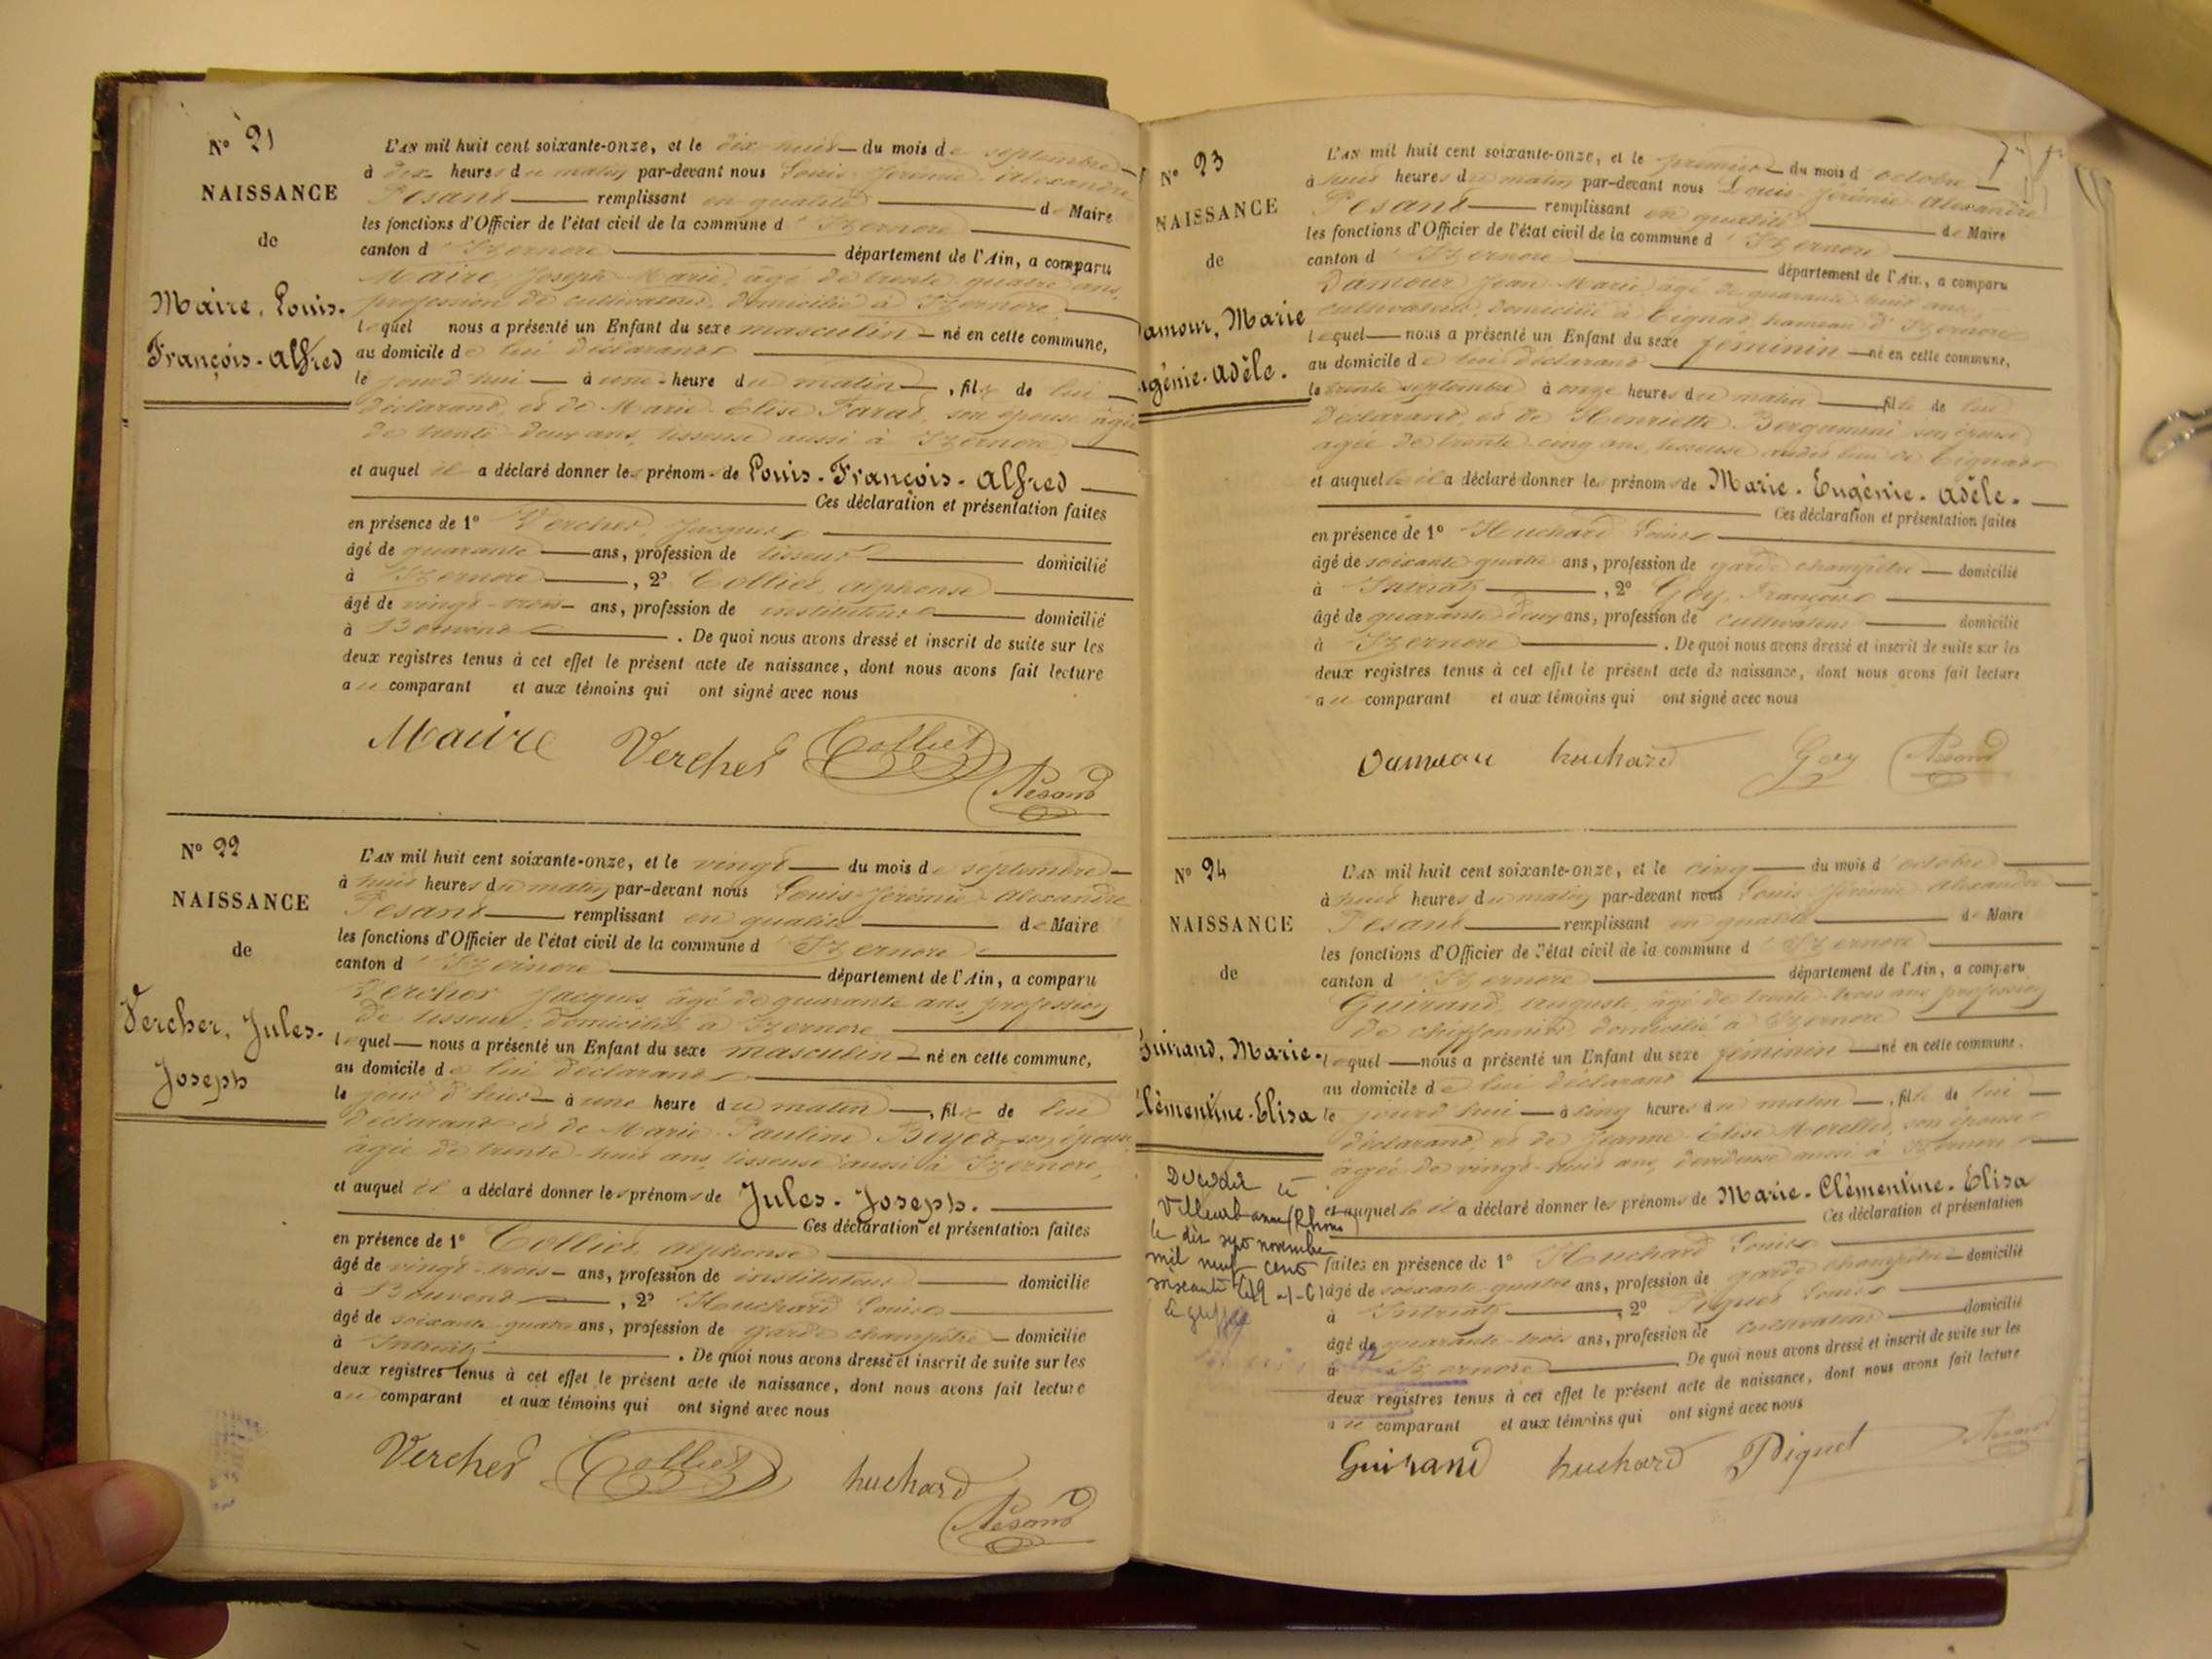 N° 21
NAISSANCE
de
Maire, Louis-
François-Alfred
L'AN mil huit cent soixante-onze, et le dix huit — du mois de septembre —
à dix heures du matin par-devant nous Louis-Jérémie-Alexandre
Pesant — remplissant en qualité — de Maire
les fonctions d'Officier de l'état civil de la commune d'Izernore —
canton d'Izernore — département de l'Ain, a comparu
Maire, Joseph-Marie, âgé de trente quatre ans,
profession de cultivateur, domicilié à Izernore, —
lequel nous a présenté un Enfant du sexe masculin — né en cette commune,
au domicile de lui déclarant —
le jourd'hui — à une heure du matin —, fils de lui —
déclarant, et de Marie-Elise Farat, son épouse âgée
de trente-deux ans, tisseuse aussi à Izernore —
et auquel il a déclaré donner les prénoms de Louis-François-Alfred —
— Ces déclaration et présentation faites
en présence de 1° Vercher, Jacques —
âgé de quarante — ans, profession de tisseur — domicilié
à Izernore —, 2° Collier, Alphonse —
âgé de vingt-trois — ans, profession de instituteur — domicilié
à Bouvent —. De quoi nous avons dressé et inscrit de suite sur les
deux registres tenus à cet effet le présent acte de naissance, dont nous avons fait lecture
au comparant et aux témoins qui ont signé avec nous
Maire Vercher Collier
Pesant
N° 22
NAISSANCE
de
Vercher, Jules-
Joseph
L'AN mil huit cent soixante-onze, et le vingt — du mois de septembre —
à huit heures du matin par-devant nous Louis-Jérémie-Alexandre
Pesant — remplissant en qualité — de Maire
les fonctions d'Officier de l'état civil de la commune d'Izernore —
canton d'Izernore — département de l'Ain, a comparu
Vercher Jacques, âgé de quarante ans, profession
de tisseur, domicilié à Izernore —
lequel — nous a présenté un Enfant du sexe masculin — né en cette commune,
au domicile de lui déclarant —
le jour d'hier — à une heure du matin —, fils de lui
déclarant et de Marie-Pauline son épouse
âgée de trente-huit ans, tisseuse aussi à Izernore,
et auquel il a déclaré donner les prénoms de Jules-Joseph. —
— Ces déclaration et présentation faites
en présence de 1° Collier, Alphonse —
âgé de vingt-trois — ans, profession de instituteur — domicilié
à Bouvent —, 2° Huchard Louis —
âgé de soixante-quatre ans, profession de garde champêtre — domicilié
à Intriatz —. De quoi nous avons dressé et inscrit de suite sur les
deux registres tenus à cet effet le présent acte de naissance, dont nous avons fait lecture
au comparant et aux témoins qui ont signé avec nous
Vercher Collier huchard
Pesant
N° 23
NAISSANCE
de
Damour, Marie
Eugénie-Adèle.
L'AN mil huit cent soixante-onze, et le premier — du mois d'octobre —
à huit heures du matin par-devant nous Louis-Jérémie-Alexandre
Pesant — remplissant en qualité — de Maire
les fonctions d'Officier de l'état civil de la commune d'Izernore —
canton d'Izernore — département de l'Ain, a comparu
Damour Jean-Marie âgé de quarante huit ans,
cultivateur, domicilié à Tignat, hameau d'Izernore
lequel — nous a présenté un Enfant du sexe féminin — né en cette commune,
au domicile de lui déclarant —
le trente septembre à onze heures du matin — fille de lui
déclarant, et de Henriette son épouse
âgée de trente-cinq ans, tisseuse audit lieu de Tignat
et auquel le il a déclaré donner les prénoms de Marie-Eugénie-Adèle. —
— Ces déclaration et présentation faites
en présence de 1° Huchard Louis —
âgé de soixante-quatre ans, profession de garde champêtre — domicilié
à Intriatz —, 2° Goy, François —
âgé de quarante deux ans, profession de cultivateur — domicilié
à Izernore —. De quoi nous avons dressé et inscrit de suite sur les
deux registres tenus à cet effet le présent acte de naissance, dont nous avons fait lecture
au comparant et aux témoins qui ont signé avec nous
Damour huchard Goy Pesant
N° 24
NAISSANCE
de
Guirand, Marie-
Clémentine-Elisa
L'AN mil huit cent soixante-onze, et le cinq — du mois d'octobre —
à huit heures du matin par-devant nous Louis-Jérémie-Alexandre —
Pesant — remplissant en qualité — de Maire
les fonctions d'Officier de l'état civil de la commune d'Izernore —
canton d'Izernore — département de l'Ain, a comparu
Guirand, Auguste, âgé de trente-trois ans profession
de chiffonnier domicilié à Izernore —
lequel — nous a présenté un Enfant du sexe féminin — né en cette commune,
au domicile de lui déclarant —
le jourd'hui — à cinq heures du matin —, fille de lui —
déclarant, et de Jeanne-Elise son épouse
âgée de vingt-huit ans, dévideuse aussi à Izernore —
et auquel le il a déclaré donner les prénoms de Marie-Clémentine-Elisa
Ces déclaration et présentation
faites en présence de 1° Huchard Louis —
âgé de soixante-quatre ans, profession de garde champêtre — domicilié
à Intriatz —, 2° Piquet Louis —
âgé de quarante-trois ans, profession de cultivateur — domicilié
à Izernore —. De quoi nous avons dressé et inscrit de suite sur les
deux registres tenus à cet effet le présent acte de naissance, dont nous avons fait lecture
au comparant et aux témoins qui ont signé avec nous
Guirand huchard Piquet Pesant
Décédée à
Villeurbanne (Rhône)
le dix sept novembre
mil neuf cent
soixante
Le greffier